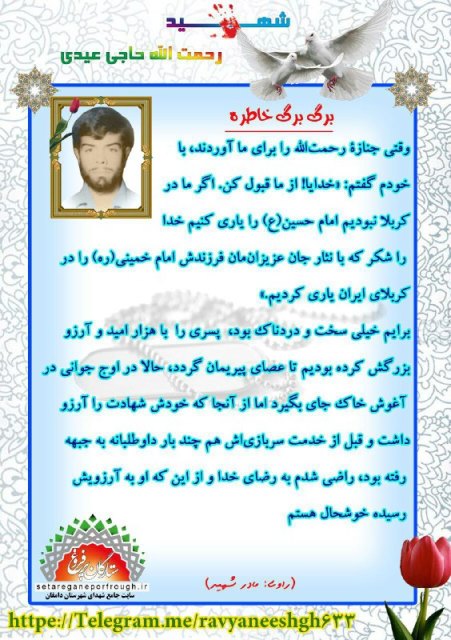 شهید
رحمت الله حاجی عیدی
برگی برگی خاطره
وقتی جنازهٔ رحمت‌الله را برای ما آوردند، با
خودم گفتم: «خدایا! از ما قبول کن. اگر ما در
کربلا نبودیم امام حسین(ع) را یاری کنیم خدا
را شکر که با نثار جان عزیزان‌مان فرزندش امام خمینی(ره) را در
کربلای ایران یاری کردیم.»
برایم خیلی سخت و دردناک بود، پسری را با هزار امید و آرزو
بزرگش کرده بودیم تا عصای پیریمان گردد، حالا در اوج جوانی در
آغوش خاک جای بگیرد اما از آنجا که خودش شهادت را آرزو
داشت و قبل از خدمت سربازی‌اش هم چند بار داوطلبانه به جبهه
رفته بود، راضی شدم به رضای خدا و از این که او به آرزویش
رسیده خوشحال هستم
(راوی: مادر شهید)
ستارگان پرفروغ
setareganeporfrough.ir
سایت جامع شهدای شهرستان دامغان
https://Telegram.me/ravyaneeshgh633